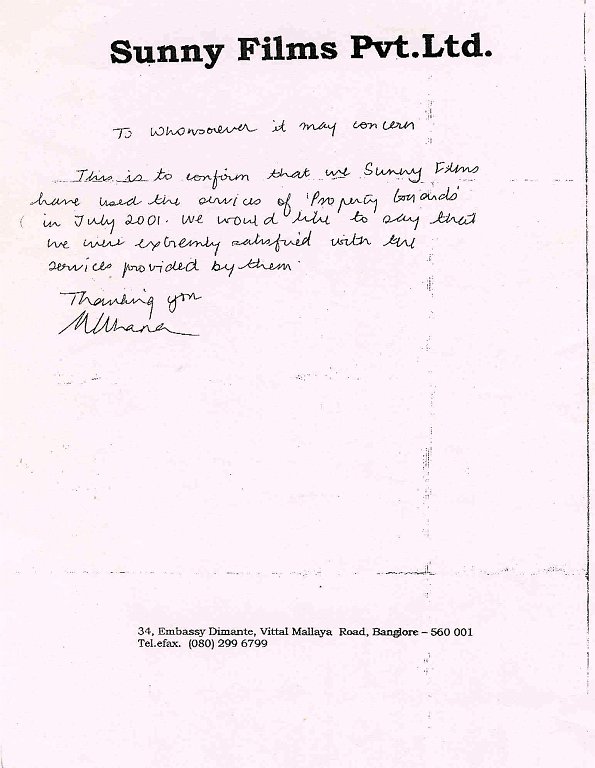 Sunny Films Pvt.Ltd.
To whomsoever it may concern
This is to confirm that we Sunny Films
have used the services of 'Property Guards'
in July 2001. We would like to say that
we were extremly satisfied with the
services provided by them.
Thanking you
34, Embassy Dimante, Vittal Mallaya Road, Banglore – 560 001
Tel.efax. (080) 299 6799